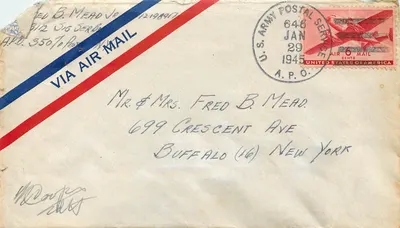 Fred B. Mead Jr.
A.P.O. 350
VIA AIR MAIL
U.S. ARMY POSTAL SERVICE
646
JAN
29
1945
A.P.O.
6
CENTS
AIR MAIL
UNITED STATES OF AMERICA
Mr. & Mrs. Fred B. Mead.
699 Crescent Ave
Buffalo (16) New York